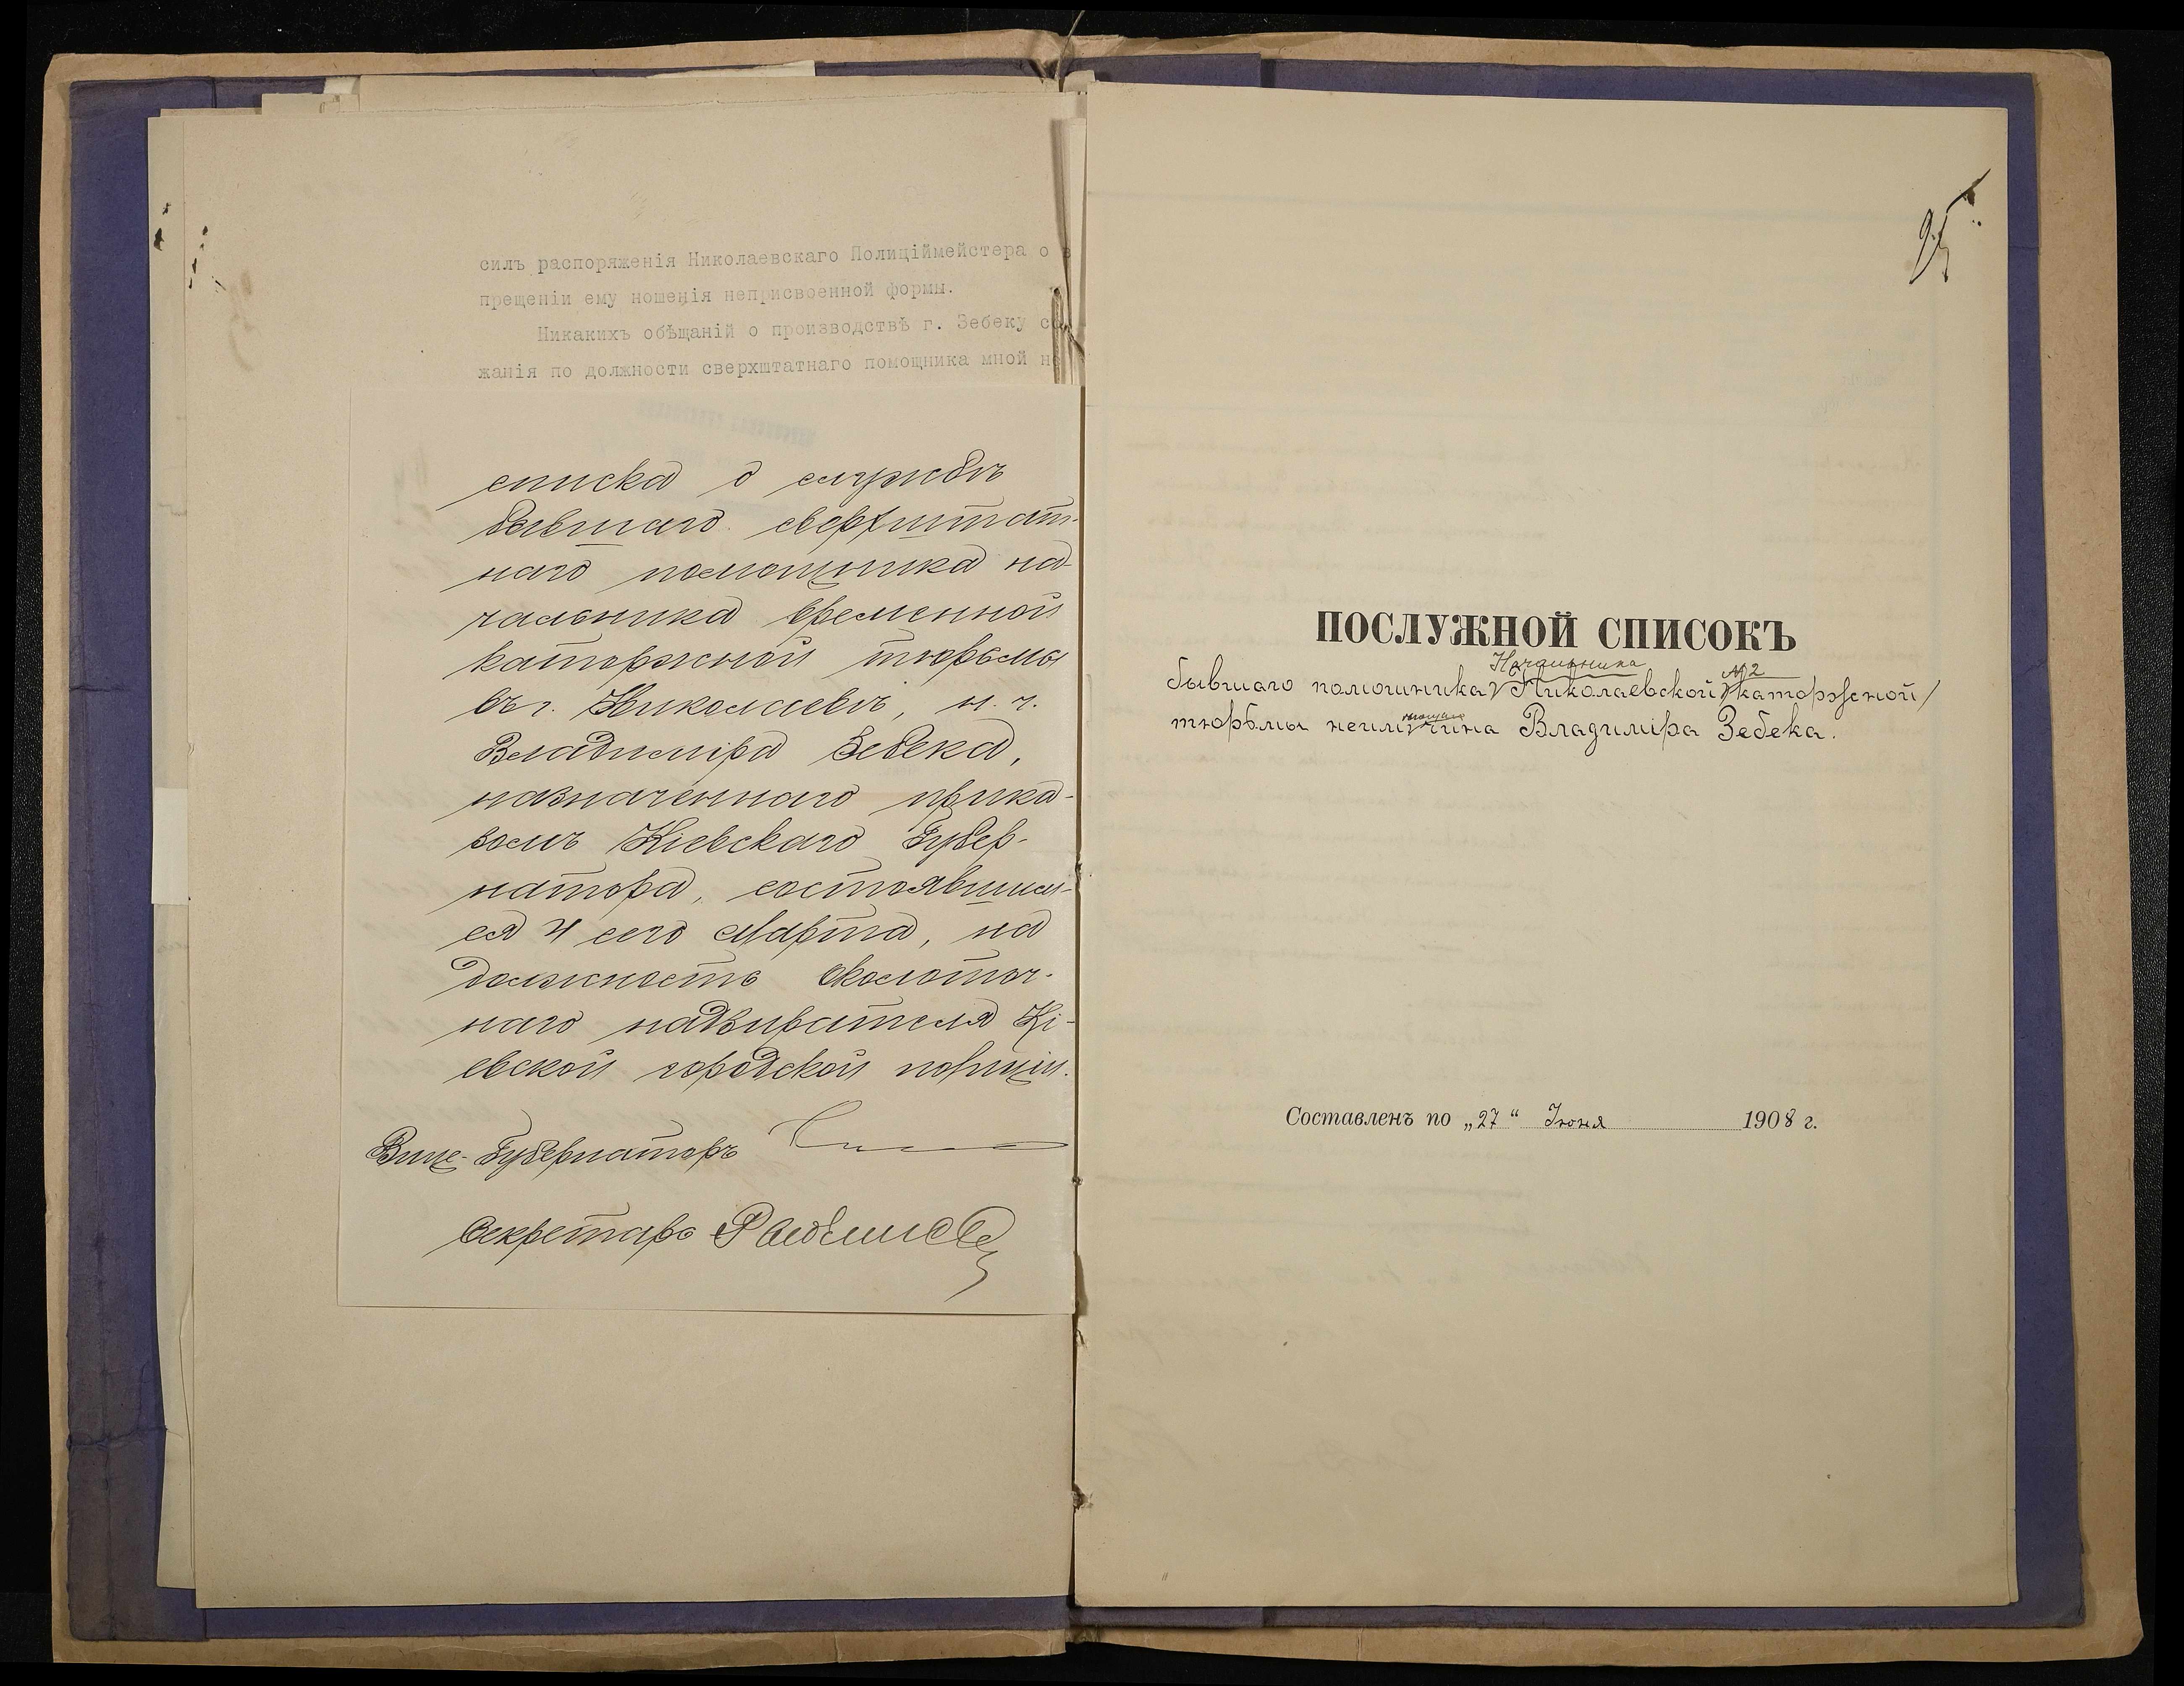 силъ распоряженія Николаевскаго Полиціймейстера о
прещеніи ему ношенія неприсвоенной формы.
Никакихъ обѣщаній о производствѣ г. Зебеку
жанія по должности сверхштатнаго помощника мной
списка о службѣ
бывшаго сверхштат-
наго помощника на-
чальника временной
каторжной тюрьмы
въ г. Николаевѣ, н. ч.
Владиміра Зебека,
назначеннаго прика-
зомъ Кіевскаго Губер-
натора, состоявшим-
ся 4 сего Марта, на
должность околоточ-
наго надзирателя Кі-
евской городской полиціи.
Вице-Губернаторъ
Секретарь
95
ПОСЛУЖНОЙ СПИСОКЪ
Начальника №2
бывшаго помощника Николаевской каторжной
тюрьмы неимѣющаго чина Владиміра Зебека.
Составленъ по „27“ Іюня 1908 г.